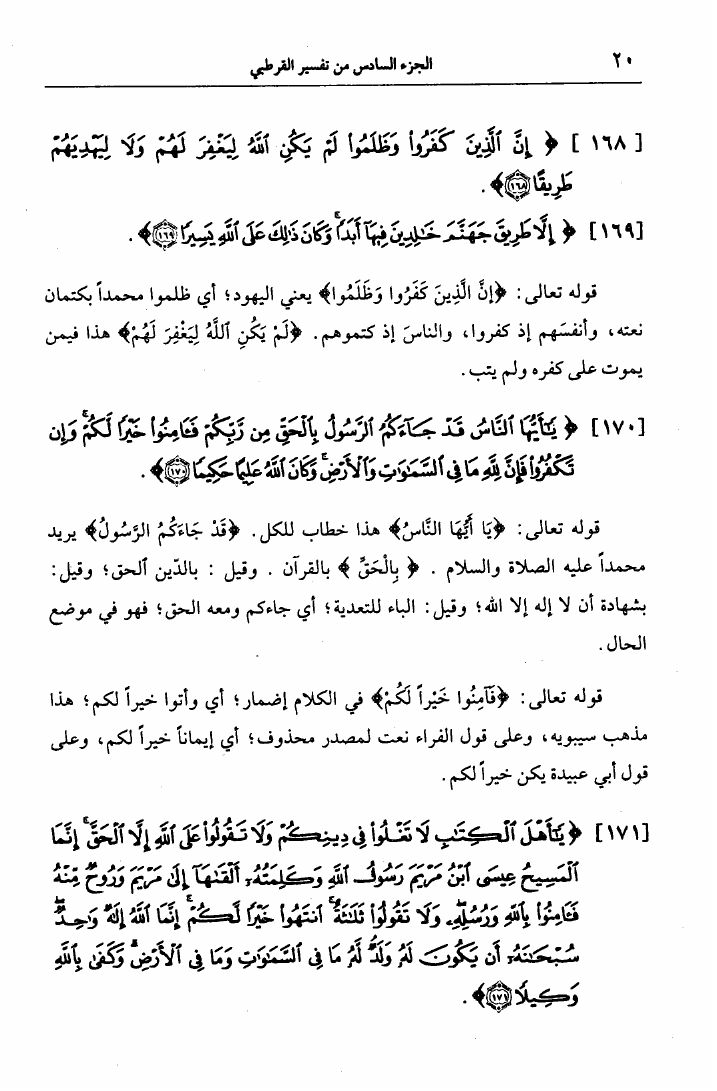 ٢٠
الجزء السادس من تفسير القرطبي
[١٦٨] ﴿ إِنَّ ٱلَّذِينَ كَفَرُوا۟ وَظَلَمُوا۟ لَمْ يَكُنِ ٱللَّهُ لِيَغْفِرَ لَهُمْ وَلَا لِيَهْدِيَهُمْ
طَرِيقًا ١٦٨﴾ .
[١٦٩] ﴿ إِلَّا طَرِيقَ جَهَنَّمَ خَٰلِدِينَ فِيهَآ أَبَدًا ۚ وَكَانَ ذَٰلِكَ عَلَى ٱللَّهِ يَسِيرًا ١٦٩﴾ .
قوله تعالى: ﴿إِنَّ الَّذِينَ كَفَرُوا وَظَلَمُوا﴾ يعني اليهود؛ أي ظلموا محمداً بكتمان
نعته، وأنفسَهم إذ كفروا، والناسَ إذ كتموهم. ﴿لَمْ يَكُنِ ٱللَّهُ لِيَغْفِرَ لَهُمْ﴾ هذا فيمن
يموت على كفره ولم يتب.
[١٧٠] ﴿ يَٰٓأَيُّهَا ٱلنَّاسُ قَدْ جَآءَكُمُ ٱلرَّسُولُ بِٱلْحَقِّ مِن رَّبِّكُمْ فَـَٔامِنُوا۟ خَيْرًا لَّكُمْ ۚ وَإِن
تَكْفُرُوا۟ فَإِنَّ لِلَّهِ مَا فِى ٱلسَّمَٰوَٰتِ وَٱلْأَرْضِ ۚ وَكَانَ ٱللَّهُ عَلِيمًا حَكِيمًا ١٧٠﴾ .
قوله تعالى: ﴿يَا أَيُّهَا النَّاسُ﴾ هذا خطاب للكل. ﴿قَدْ جَاءَكُمُ الرَّسُولُ﴾ يريد
محمداً عليه الصلاة والسلام . ﴿ بِالْحَقِّ ﴾ بالقرآن . وقيل : بالدّين ٱلحق؛ وقيل:
بشهادة أن لا إله إلا الله؛ وقيل: الباء للتعدية؛ أي جاءكم ومعه الحق؛ فهو في موضع
الحال.
قوله تعالى: ﴿فَآمِنُوا خَيْراً لَكُمْ﴾ في الكلام إضمار؛ أي وأتوا خيراً لكم؛ هذا
مذهب سيبويه، وعلى قول الفراء نعت لمصدر محذوف؛ أي إيماناً خيراً لكم، وعلى
قول أبي عبيدة يكن خيراً لكم.
[١٧١] ﴿ يَٰٓأَهْلَ ٱلْكِتَٰبِ لَا تَغْلُوا۟ فِى دِينِكُمْ وَلَا تَقُولُوا۟ عَلَى ٱللَّهِ إِلَّا ٱلْحَقَّ ۚ إِنَّمَا
ٱلْمَسِيحُ عِيسَى ٱبْنُ مَرْيَمَ رَسُولُ ٱللَّهِ وَكَلِمَتُهُۥٓ أَلْقَىٰهَآ إِلَىٰ مَرْيَمَ وَرُوحٌ مِّنْهُ
فَـَٔامِنُوا۟ بِٱللَّهِ وَرُسُلِهِۦ ۖ وَلَا تَقُولُوا۟ ثَلَٰثَةٌ ۚ ٱنتَهُوا۟ خَيْرًا لَّكُمْ ۚ إِنَّمَا ٱللَّهُ إِلَٰهٌ وَٰحِدٌ ۖ
سُبْحَٰنَهُۥٓ أَن يَكُونَ لَهُۥ وَلَدٌ ۘ لَّهُۥ مَا فِى ٱلسَّمَٰوَٰتِ وَمَا فِى ٱلْأَرْضِ ۗ وَكَفَىٰ بِٱللَّهِ
وَكِيلًا ١٧١﴾ .